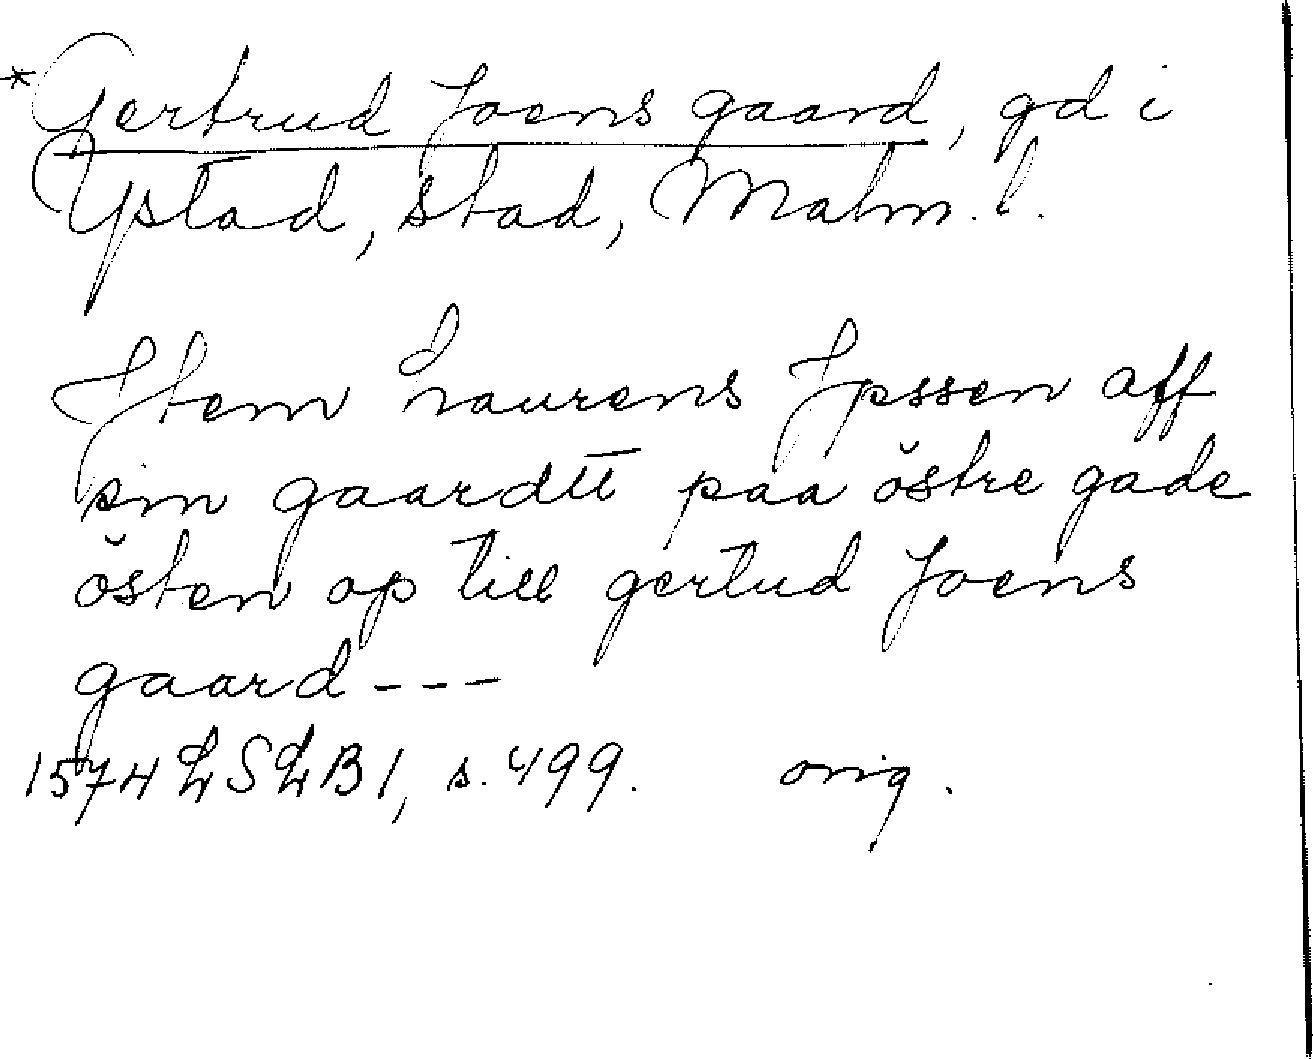 * Gertrud Joens gaard, gd i
Ystad, stad, Malm. l.
Jtem Laurens Jpssen aff
sin gaardtt paa östre gade
östen op till gertud Joens
gaard - - -
1574 LSLB 1, s. 499. orig.